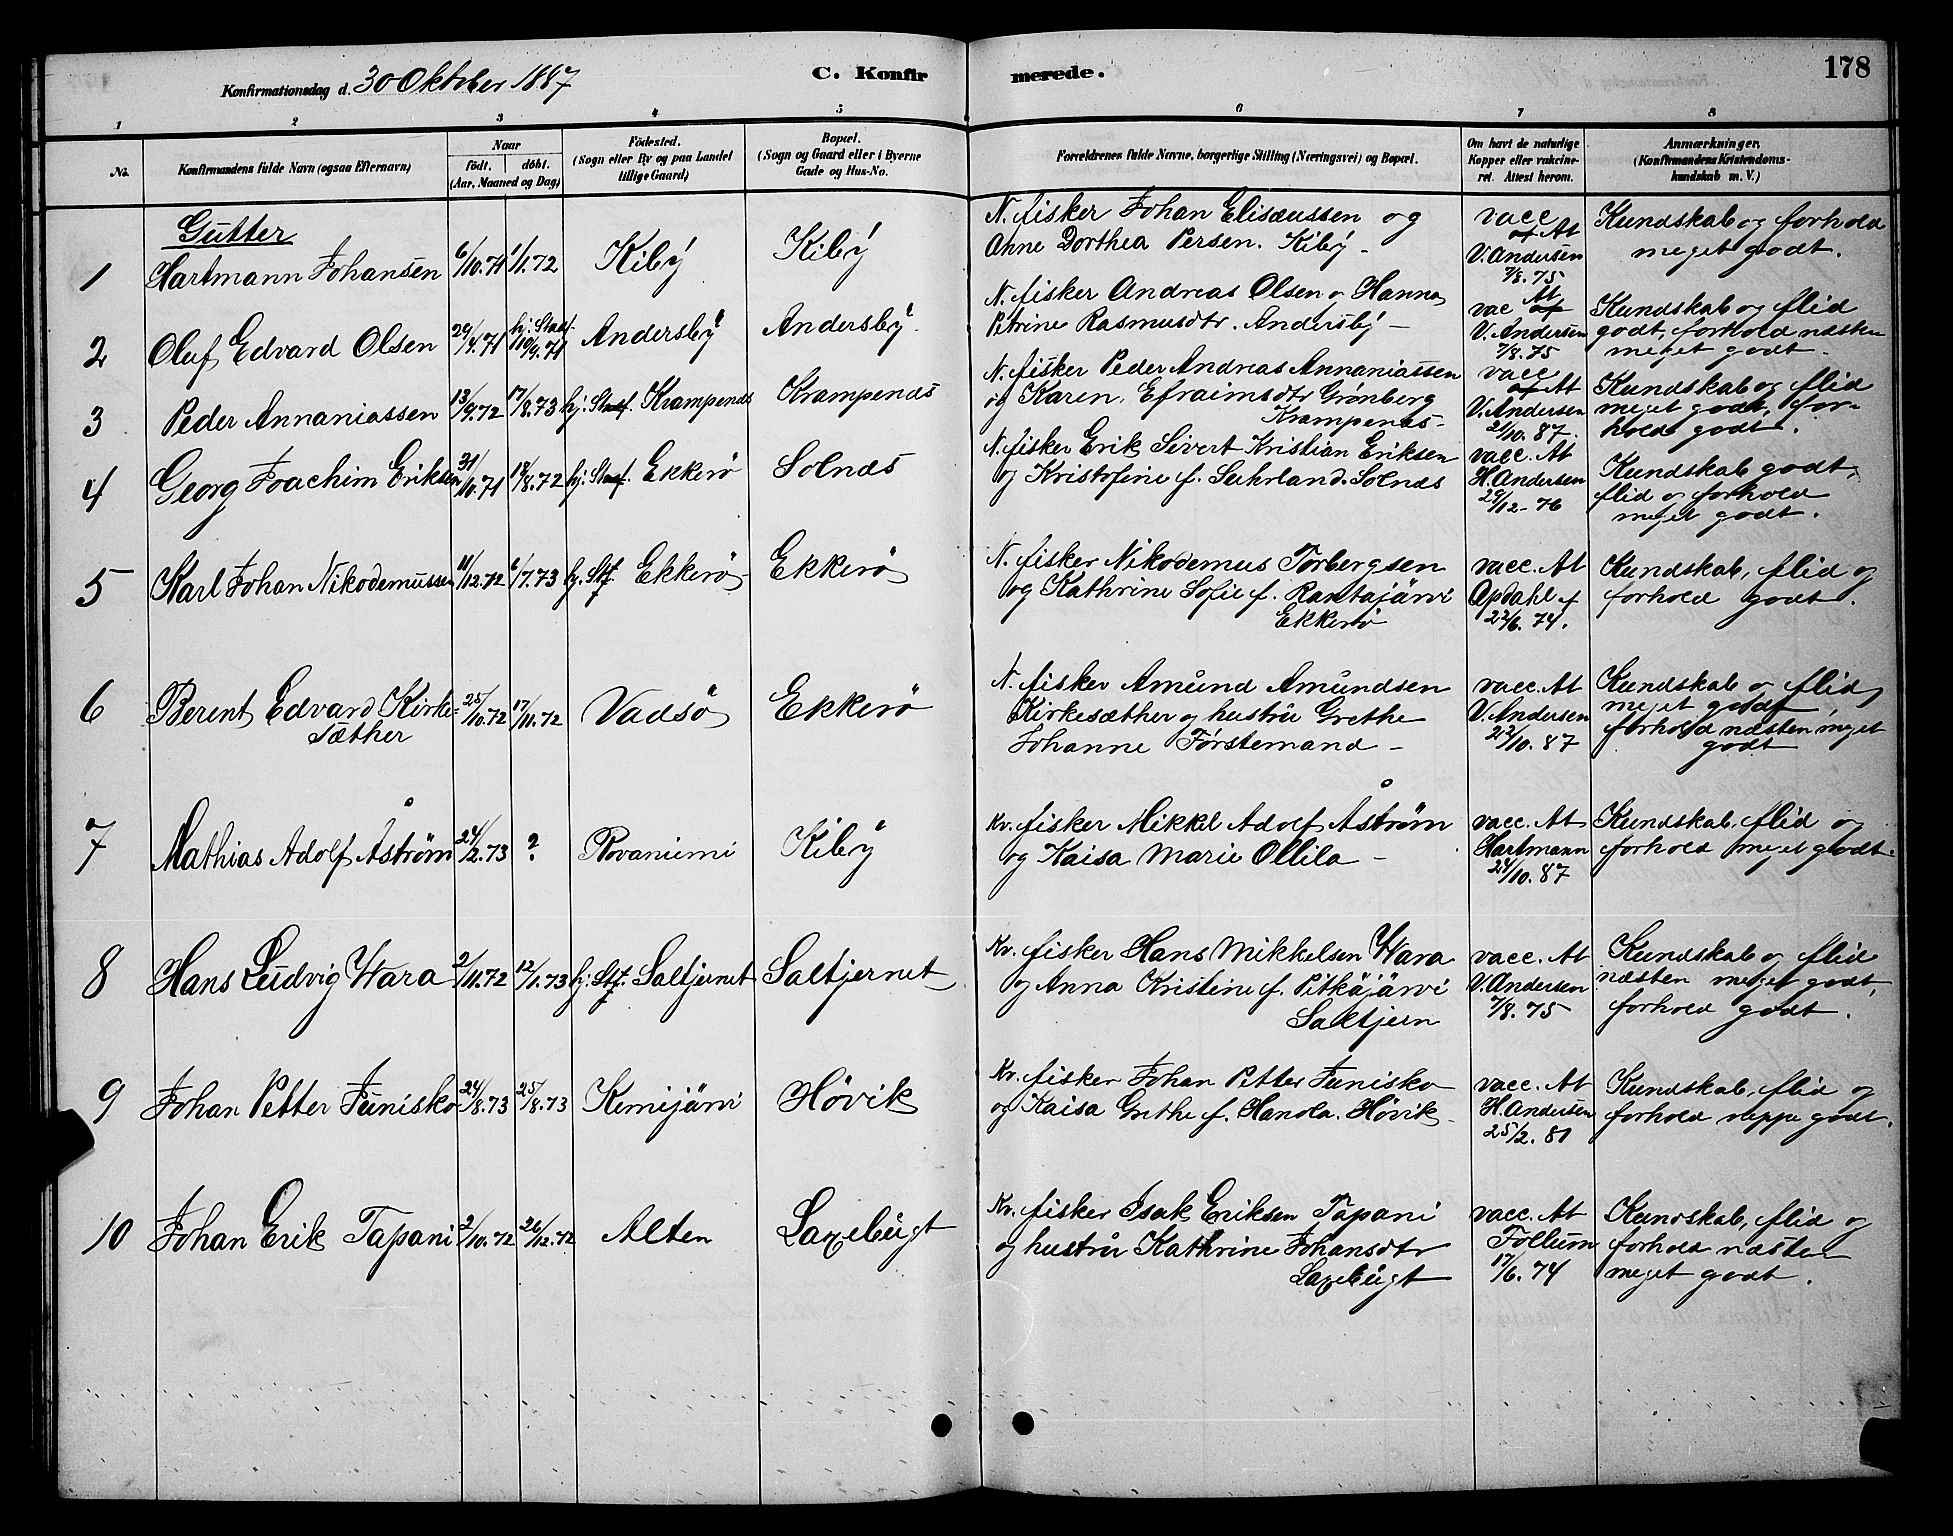 178
Konfirmationsdag d. 30 Oktober 1887
C. Konfir merede.
1 2 3 4 5 6 7 8
No.
Konfirmandens fulde Navn (ogsaa Efternavn)
Naar
födt. döbt.
(Aar, Maaned og Dag)
Födested.
(Sogn eller By og paa Landet
tillige Gaard)
Bopæl.
(Sogn og Gaard eller i Byerne
Gade og Hus-No.
Forældrenes fulde Navne, borgerlige Stilling (Næringsvei) og Bopæl.
Om havt de naturlige
Kopper eller vakcine-
ret. Attest herom.
Anmærkninger.
(Konfirmandens Kristendoms-
kundskab m. V.)
Gutter
1 Hartmann Johansen 6/10.71 1/1.72 Kibÿ Kibÿ
N. fisker Johan Elisæussen og
Anne Dorthea Persen. Kibÿ -
vacc
af At
V. Andersen
7/8.75
Kundskab og forhold
meget godt.
2 Oluf Edvard Olsen 29/4.71 hj. Staaf. Andersbÿ Andersbÿ
N. fisker Andreas Olsen og Hanna
Petrine Rasmusdtr. Andersbÿ -
vac At
af
V. Andersen
7/8.75
Kundskab og flid
godt, forhold næsten
meget godt.
3 Peder Annaniassen 13/9.72 17/8.73 hj. Staaf. Krampenæs Krampenæs
N. fisker Peder Andreas Annaniassen
og Karen Efraimsdtr Grønberg
Krampenæs -
vacc
af At
V. Andersen
21/10.87.
Kundskab og flid
meget godt, for-
hold godt.
4 Georg Joachim Eriksen 31/10.71 18/8.72 hj. Staaf. Ekkerö Solnæs
N. fisker Erik Sivert Kristian Eriksen
og Kristofine f. Suhrland. Solnæs
vacc. At
H. Andersen
29/12-76
Kundskab godt,
flid og forhold
meget godt.
5 Karl Johan Nikodemussen 11/12.72 6/7.73 hj. Stf. Ekkerö Ekkerö
N. fisker Nikodemus Torbergsen
og Kathrine Sofie f. Rantajärvi
Ekkerö
vacc. At
Opdahl f
22/6.74.
Kundskab, flid og
forhold godt.
6 Berent Edvard Kirke= 25/10.72 17/11.72 Vadsö Ekkerö
sæther
N. fisker Amund Amundsen
Kirkesæther og hustru Grethe
Johanne Förstemand -
vacc. At
V. Andersen
22/10.87
Kundskab og flid
meget godt,
forhold næsten meget
godt
7 Mathias Adolf Åström 24/2.73 ? Rovaniemi Kibÿ
Kv. fisker Mikkel Adolf Åström
og Kaisa Marie Ollila -
vacc. At
Hartmann
24/10.87
Kundskab, flid og
forhold meget godt.
8 Hans Ludvig Wara 2/11.72 12/1.73 hj. Stf. Saltjernet Saltjernet
Kv. fisker Hans Mikkelsen Wara
og Anna Kristine f. Pitkäjärvi
Saltjern
vacc. At
V. Andersen
7/8.75
Kundskab og flid
næsten meget godt,
forhold godt.
9 Johan Petter Junisko 24/8.73 25/8.73 Kemijärvi Hövik
Kv. fisker Johan Petter Junisko
og Kaisa Grethe f. Hanola. Hövik -
vacc. At
H. Andersen
25/2.81
Kundskab, flid og
forhold neppe godt.
10 Johan Erik Tapani 2/10.72 26/12.72 Alten Laxebugt
Kv. fisker Isak Eriksen Tapani
og hustru Kathrine Johansdtr
Laxebugt
vacc. At
Follum
17/6.74
Kundskab, flid og
forhold næsten
meget godt.